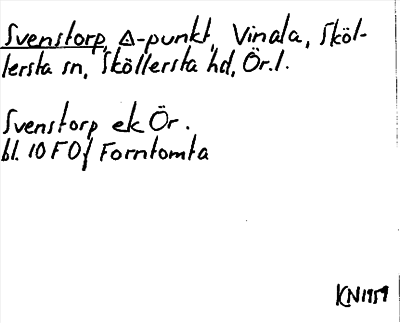 Svenstorp, Δ-punkt, Vinala, Sköl-
lersta sn, Sköllersta hd, Ör. l.
Svenstorp ek Ör.
bl. 10 F 0f Forntomta
KN 1959